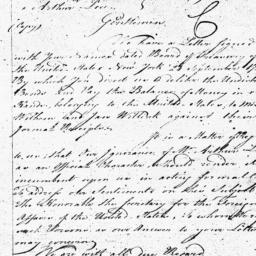 & Arthur Lee
(Copy)
Gentlemen
We have a Letter signed
with Your Names late Board of Treasury of
the United States New York 23 September
By which You direct us to deliver the Undivided
Bonds and Pay the Balance of Money in our
Hands, belonging to the United States, to M
Willem and Jan Willink against their
formal Receipts
It is a Matter of Reg
to us, that Our Ignorance of Mr Arthur L
as an Official Character should render it
incumbent upon us in acting formal
to address our Sentiments on this Subject
the Honorable the Secretary for the Foreign
Affairs of the United States, to whom We
our Answer to your Letter
may concern
We are with all due Regard